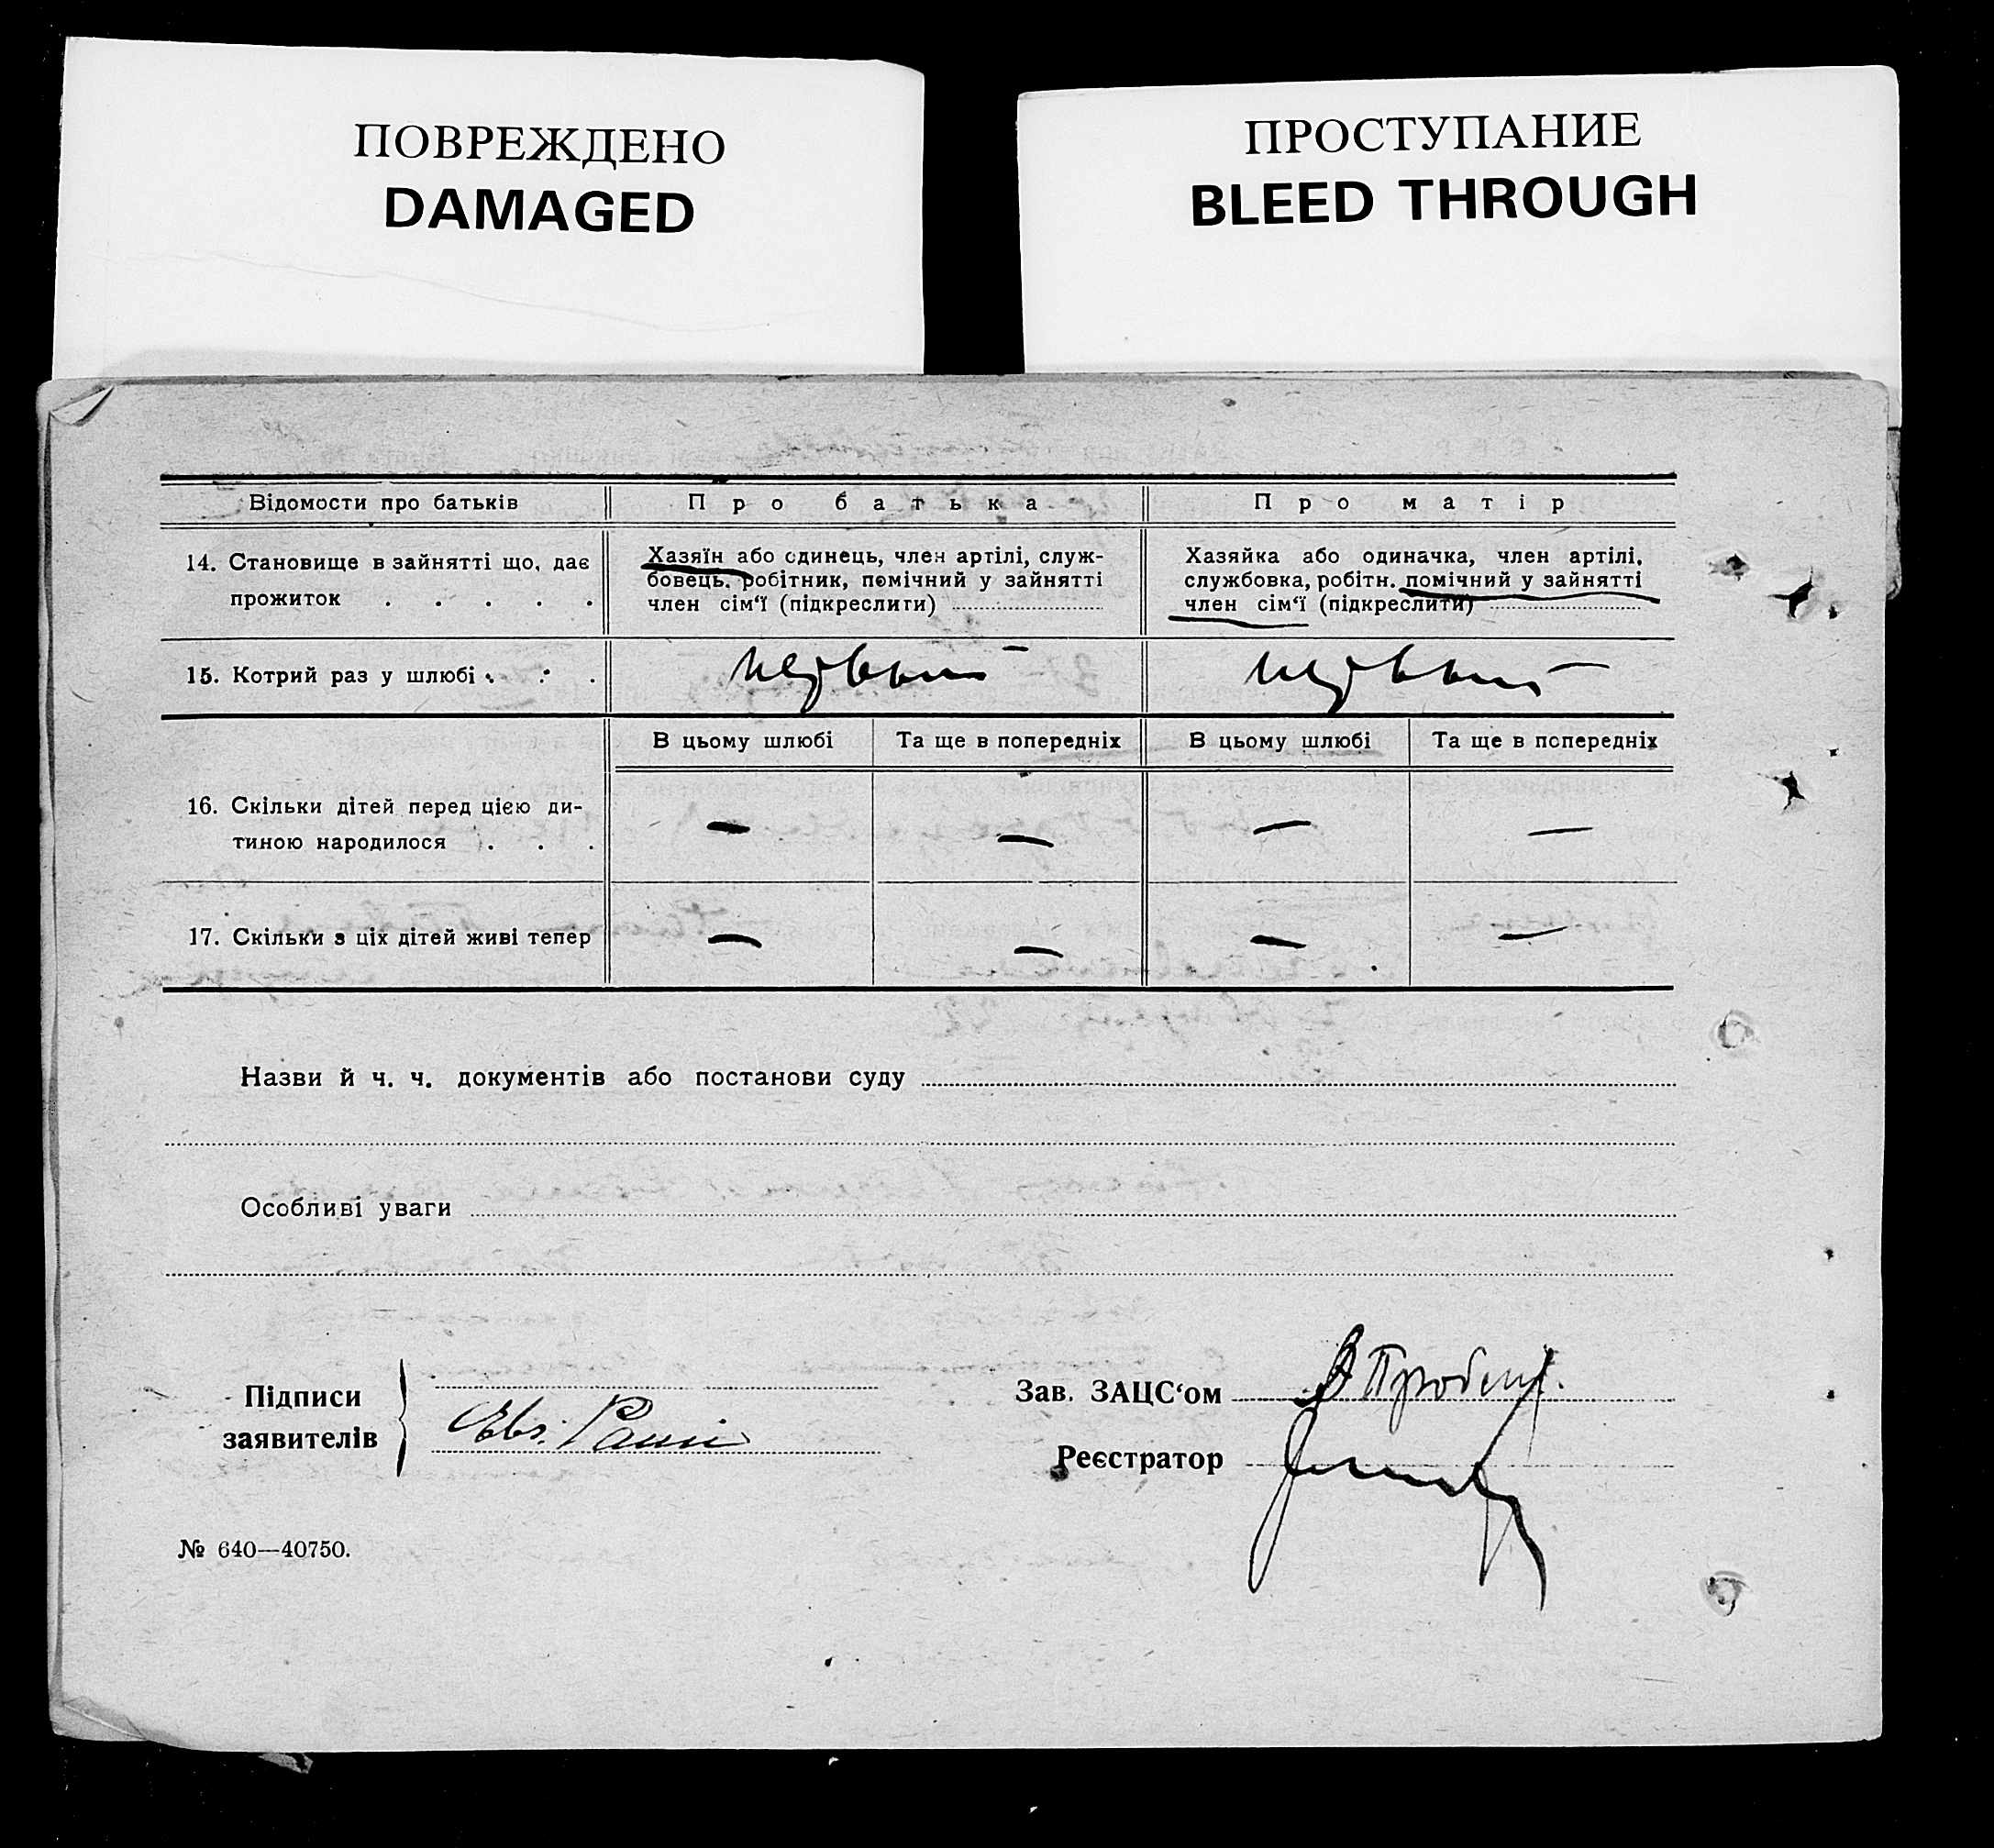 ПОВРЕЖДЕНО
DAMAGED
ПРОСТУПАНИЕ
BLEED THROUGH
Відомости про батьків
Про батька
Про матір
14. Становище в зайнятті що, дає
прожиток . . . . .
Хазяїн або одинець, член артілі, служ-
бовець, робітник, помічний у зайнятті
член сім‘ї (підкреслити)
Хазяйка або одиначка, член артілі,
службовка, робітн. помічний у зайнятті
член сім‘ї (підкреслити)
15. Котрий раз у шлюбі . . .
В цьому шлюбі
Та ще в попередніх
В цьому шлюбі
Та ще в попередніх
16. Скільки дітей перед цією ди-
тиною народилося . . .
— — — —
17. Скільки з ціх дітей живі тепер
— — — —
Назви й ч. ч. документів або постанови суду
Особливі уваги
Підписи
заявителів
Зав. ЗАЦС‘ом
Реєстратор
№ 640—40750.